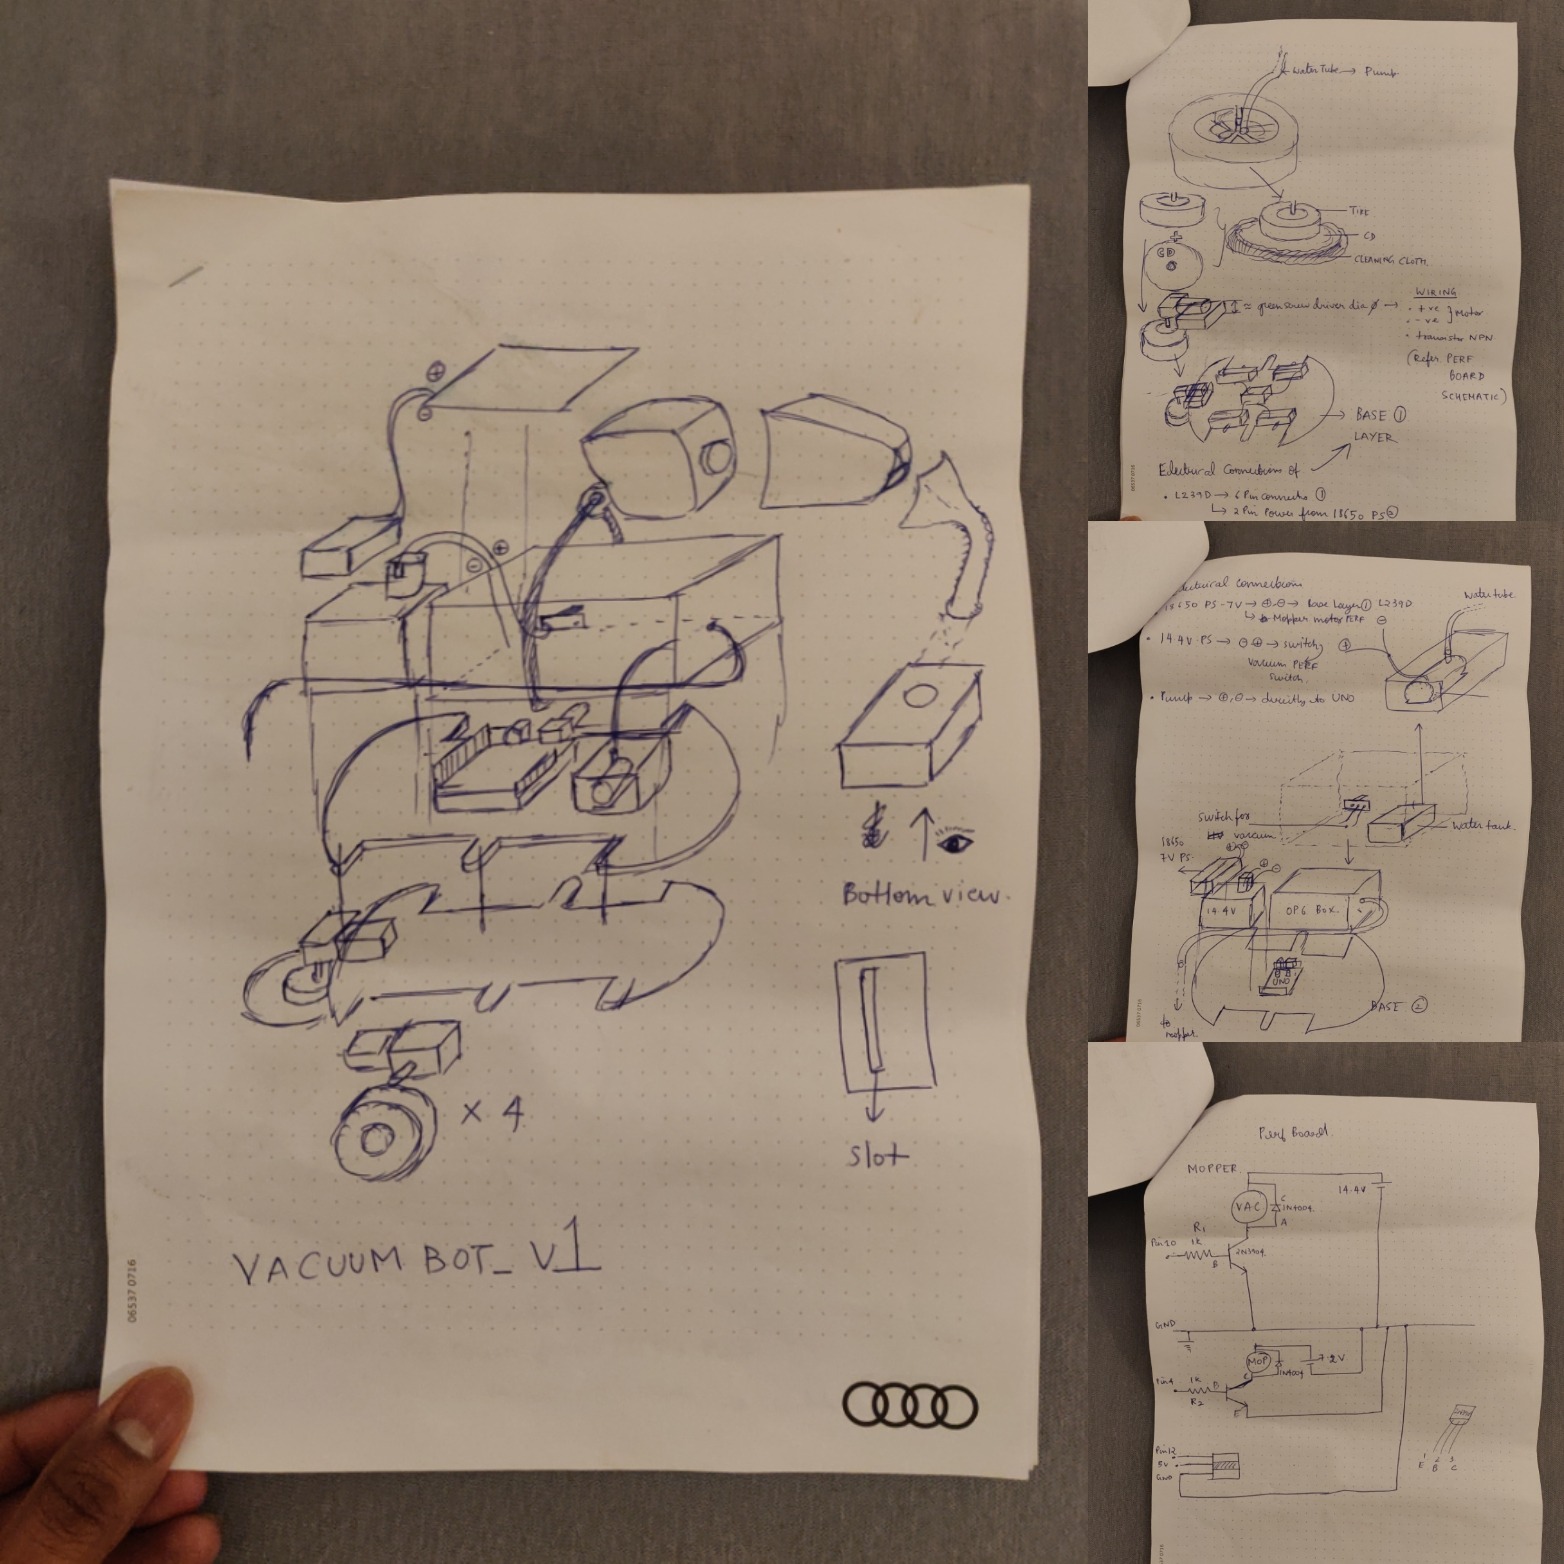 ⊕
⊖
⊕
⊖
Bottom view.
x 4
slot
VACUUM BOT_ V1
06537 0716
Water Tube → Pump
Tire
CD
CLEANING CLOTH
+
CD
≈ green screw driver dia ϕ →
WIRING
• +ve
• -ve } Motor
• transistor NPN
(Refer PERF
BOARD
SCHEMATIC)
BASE ①
LAYER
Electrical Connections of
• L239D → 6 Pin connects ①
↳ 2 Pin Power from 18650 PS ②
Electrical connections
18650 PS-7V → ⊕,⊖ → Base Layer ① L239D
↳ Mopper motor PERF
• 14.4V PS → ⊖ ⊕ → switch,
vacuum PERF
switch.
• Pump → ⊕,⊖ → directly to UNO
water tube.
⊖
⊕
switch for
vacuum
Water tank.
18650
7V PS.
⊕⊖
⊕ ⊖
14.4V
OPG BOX.
UNO
BASE ②
to
mopper.
Perf Board
MOPPER.
14.4V
VAC
C
IN4004
A
R1
1K
Pin 10
B
2N3904
GND
MOP
IN4004
7.2V
Pin 4
1K
B
C
R2
E
Pin 12
5V
GND
1 2 3
E B C